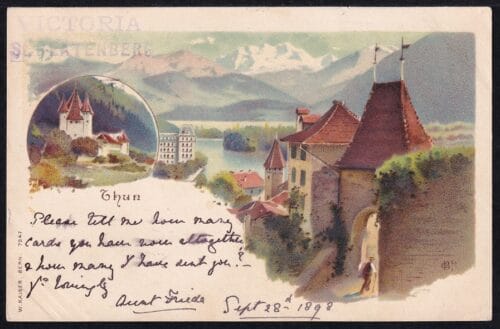 VICTORIA
SCHLATENBERG
Thun
Please tell me how many
cards you have now altogether
& how many I have sent you?
Yrs lovingly
Aunt Frieda
Sept 28th 1898
W. KAISER BERN. 7247